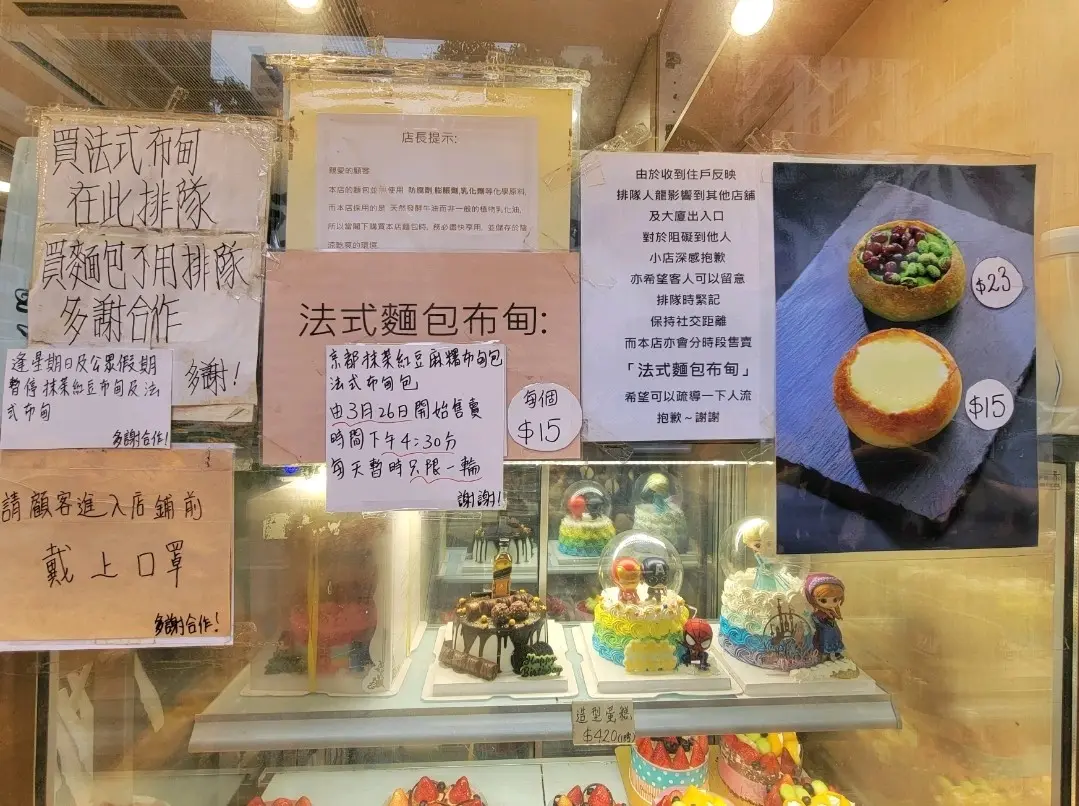 買法式布甸
在此排隊
買麵包不用排隊
多謝合作
多謝!
逢星期日及公眾假期
暫停抹茶紅豆布甸及法
式布甸
多謝合作!
請顧客進入店鋪前
戴上口罩
多謝合作!
店長提示:
親愛的顧客
本店的麵包並 使用 防腐劑,膨脹劑,乳化劑等化學原料,
而本店採用的是 天然發酵牛油而非一般的植物乳化油,
所以當閣下購買本店麵包時, 務必盡快享用, 並儲存於陰
涼乾爽的環境
法式麵包布甸:
京都抹茶紅豆麻糬布甸包
法式布甸包
由3月26日開始售賣
時間下午4:30分
每天暫時只限一輪
謝謝!
每個
$15
由於收到住戶反映
排隊人龍影響到其他店舖
及大廈出入口
對於阻礙到他人
小店深感抱歉
亦希望客人可以留意
排隊時緊記
保持社交距離
而本店亦會分時段售賣
「法式麵包布甸」
希望可以疏導一下人流
抱歉~謝謝
$23
$15
Happy
Birthday
造型蛋糕
$420